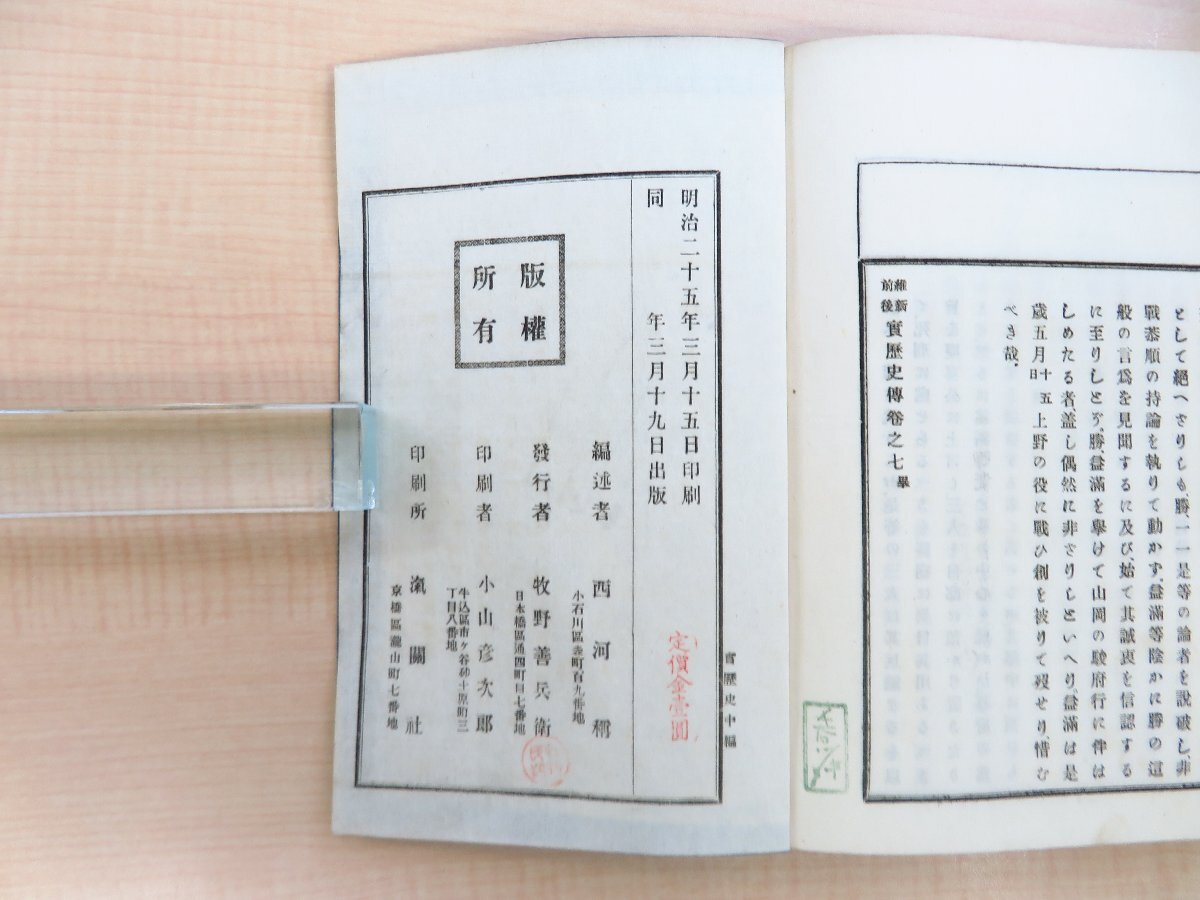 として絕へさりしも、勝、一一是等の論者を說破し、非
戰恭順の持論を執りて動かす、益滿等陰かに勝の這
般の言爲を見聞するに及び、始て其誠衷を信認する
に至りしとぞ、勝、益滿を擧けて山岡の駿府行に伴は
しめたる者、蓋し偶然に非さりしといへり、益滿は是
歲五月十五日上野の役に戰ひ創を被りて歿せり、惜む
べき哉、
維新前後實歷史傳卷之七畢
實歷史中編
明治二十五年三月十五日印刷
同年三月十九日出版
定價金壹圓
版權
所有
編述者 西河稱
小石川區 町百九番地
發行者 牧野善兵衛
日本橋區通四町目七番地
印刷者 小山彥次郎
牛込區市ヶ谷砂土原町三
丁目八番地
印刷所 滊關社
京橋區瀧山町七番地